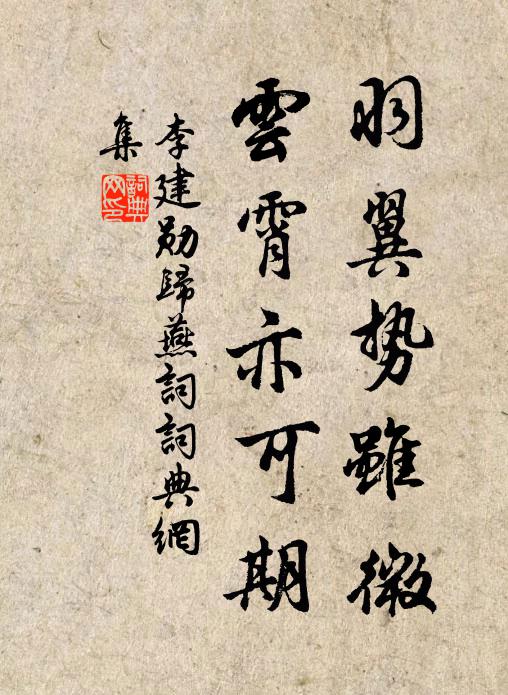 羽翼势雖微
雲霄亦可期
李建勋歸燕詞詞典網
集
詞典
网印